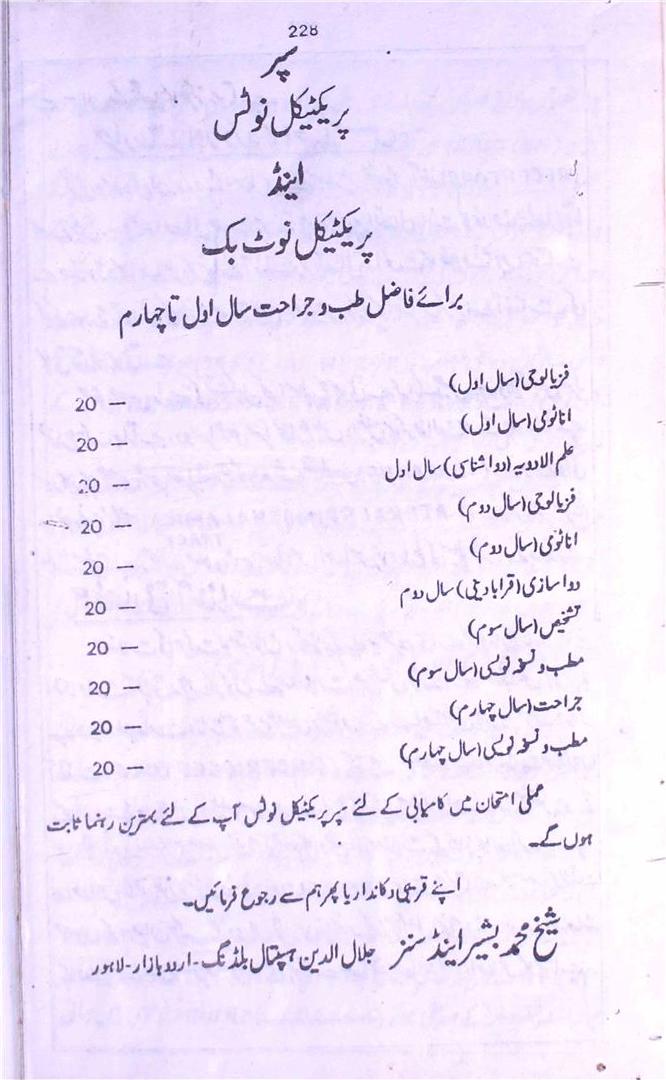 228
سپر
پریکٹیکل نوٹس
اینڈ
پریکٹیکل نوٹ بک
برائے فاضل طب و جراحت سال اول تا چہارم
فزیالوجی (سال اول)
20 —
اناٹومی (سال اول)
20 —
علم الادویہ (دوا شناسی) سال اول
20 —
فزیالوجی (سال دوم)
20 —
اناٹومی (سال دوم)
20 —
دوا سازی (قرابادینی) سال دوم
20 —
تشخیص (سال سوم)
20 —
مطب و نسخہ نویسی (سال سوم)
20 —
جراحت (سال چہارم)
20 —
مطب و نسخہ نویسی (سال چہارم)
20 —
عملی امتحان میں کامیابی کے لئے سپر پریکٹیکل نوٹس آپ کے لئے بہترین رہنما ثابت
ہوں گے۔
اپنے قریبی دکاندار یا پھر ہم سے رجوع فرمائیں۔
شیخ محمد بشیر اینڈ سنز جلال الدین ہسپتال بلڈنگ۔ اردو بازار۔ لاہور